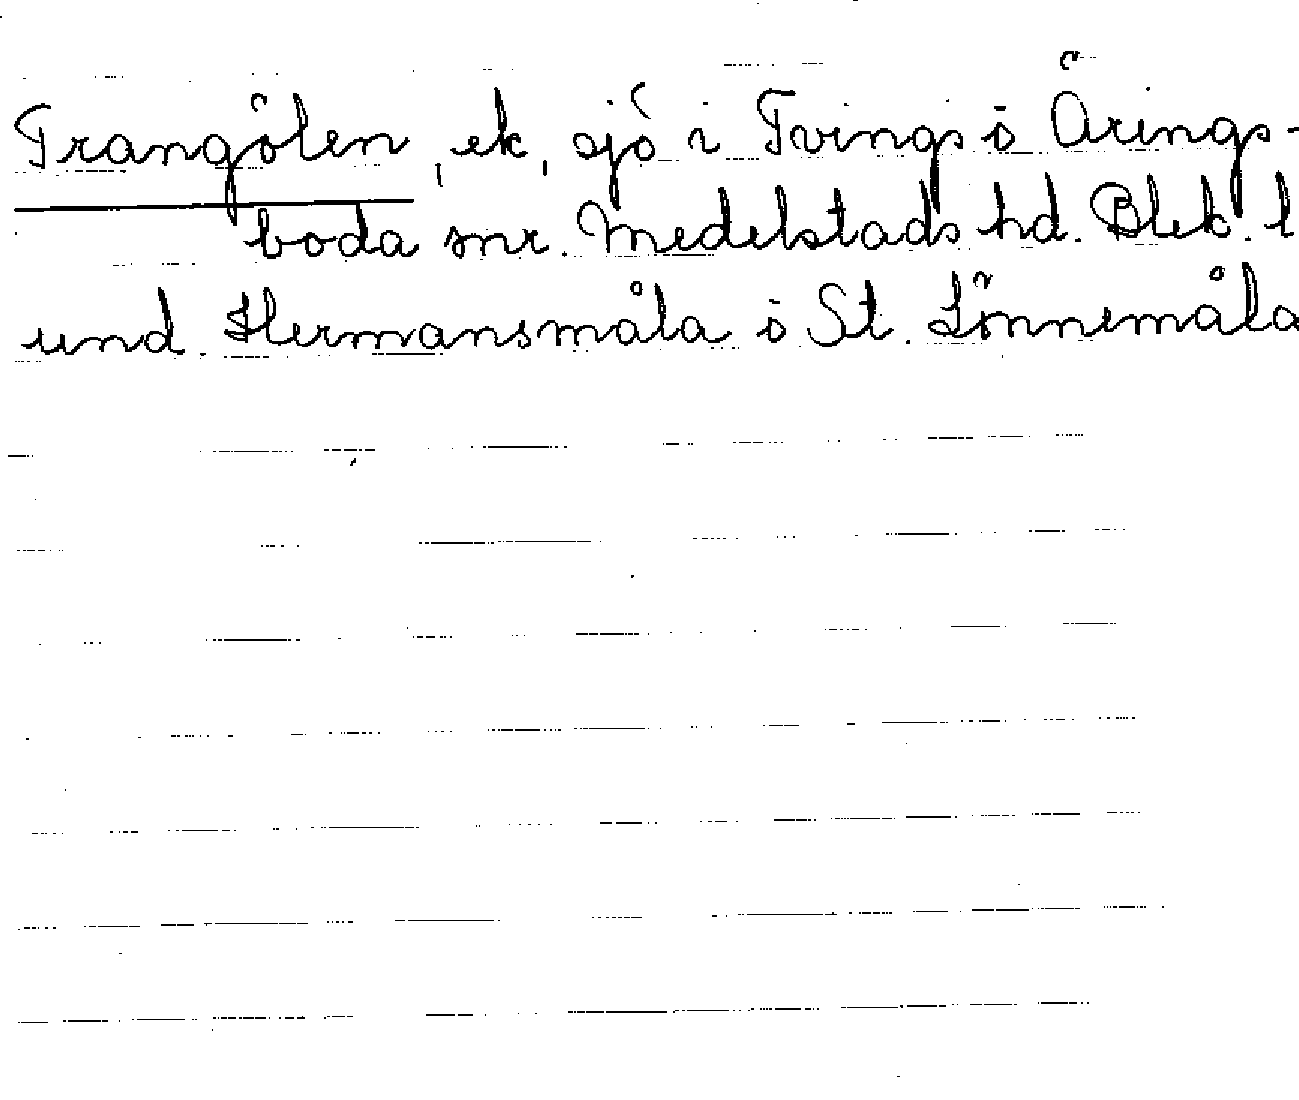 Trangölen, ek, sjö i Tvings o Örings-
boda snr. Medelstads hd. Blek. l
und. Hermansmåla o St. Lönnemåla